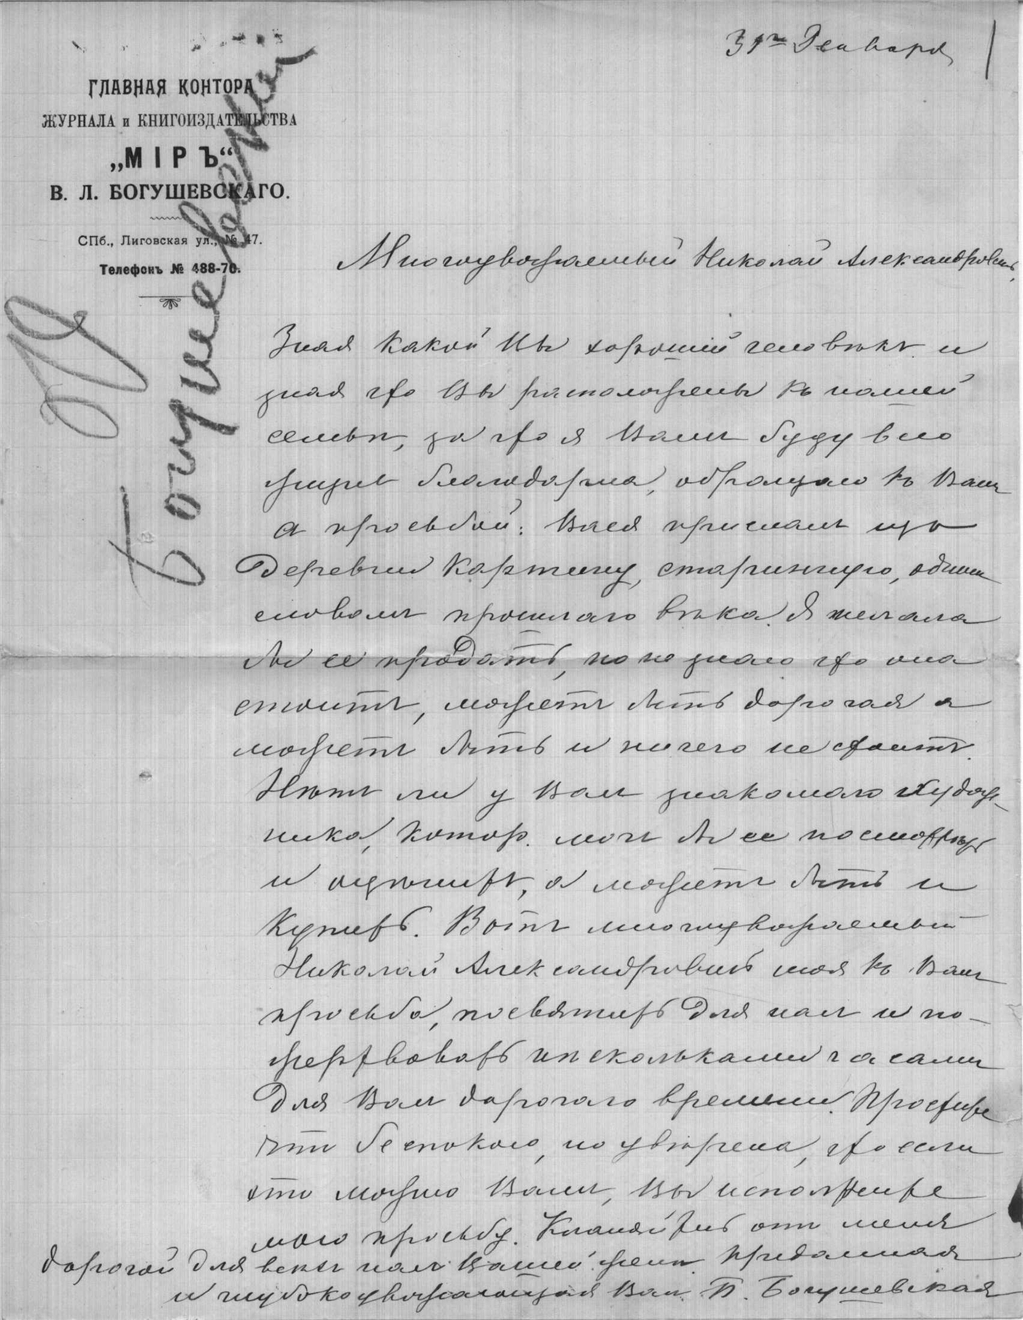 31го Января
ГЛАВНАЯ КОНТОРА
ЖУРНАЛА и КНИГОИЗДАТЕЛЬСТВА
„МІРЪ“
В. Л. БОГУШЕВСКАГО.
СПб., Лиговская ул., № 47.
Телефонъ № 488-70.
Богушевский
Многоуважаемый Николай Александровичъ,
Зная какой Вы хороший человѣкъ и
зная что Вы расположены къ нашей
семьѣ, за что я Вамъ буду всю
жизнь благодарна, обращаюсь къ Вамъ
с просьбой: Вася прислалъ изъ
Деревни Картину, старинную, однимъ
словомъ прошлаго вѣка. Я желала
бы ее продать, но не знаю что она
стоитъ, можетъ быть дорогая а
можетъ быть и ничего не стоитъ.
Нѣтъ ли у Вас знакомаго худож-
ника, котор. могъ бы ее посмотрѣть
и оцѣнить, а можетъ быть и
Купить. Вотъ многоуважаемый
Николай Александровичъ моя къ Вамъ
просьба, посвятить для нас и по-
жертвовать нѣсколькими часами
для Вас дорогаго времени. Простите
что беспокою, но увѣрена, что если
это можно Вамъ, Вы исполните
мою просьбу. Кланяйтесь отъ меня
дорогой для всѣхъ нас Вашей женѣ. Преданная
и глубокоуважающая Вас П. Богушевская